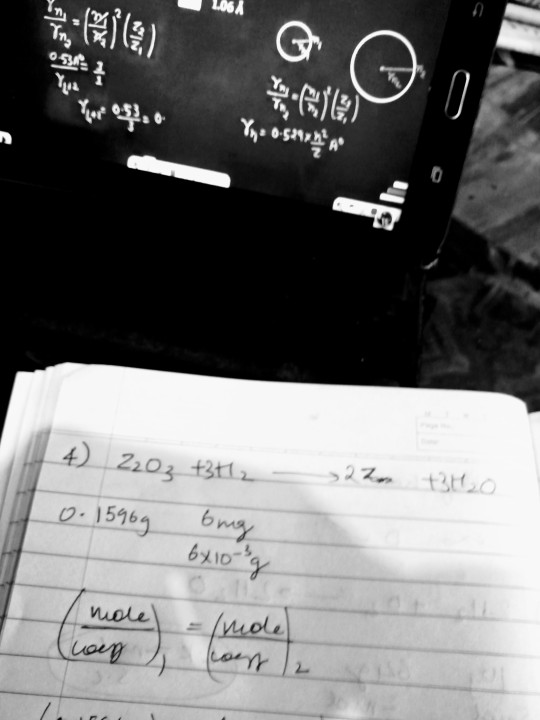 1.06 Å
rn₁/rn₂ = (n₁/n₂)² (Z₂/Z₁)
0.53A°/rLi+2 = 3/1
rLi+2 = 0.53/3 = 0.
rn₁/rn₂ = (n₁/n₂)² (Z₂/Z₁)
rn = 0.529 × n²/Z A°
Page No.
Date
4) Z₂O₃ +3H₂ ⟶ 2Z +3H₂O
0.1596g 6mg
6×10⁻³g
(mole/coeff)₁ = (mole/coeff)₂